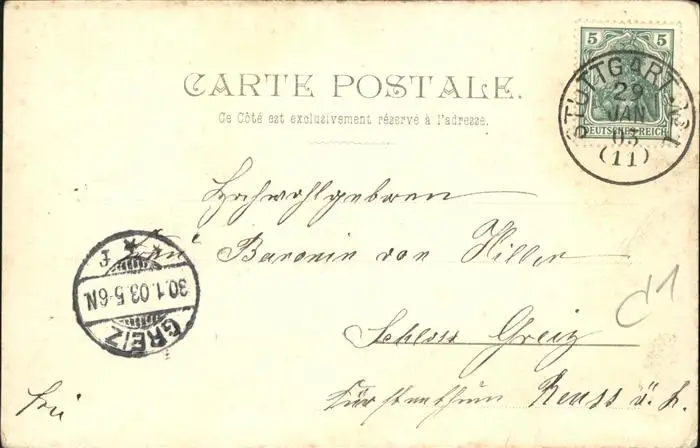 5 5
DEUTSCHES REICH
STUTTGART No 1
29
JAN
03
(11)
CARTE POSTALE.
Ce Côté est exclusivement réservé à l'adresse.
Hochwohlgeboren
Frau Baronin von Hiller
Schloss Greiz
Fürstenthum Reuss ä. L.
frei
GREIZ
30.1.03.5-6N.
* * f